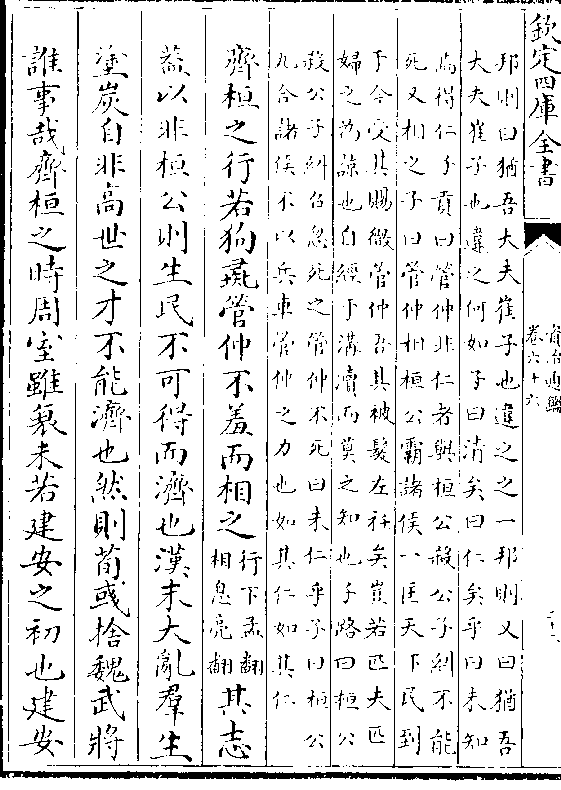 欽定四庫全書
資治通鑑
卷六十六
邦則曰猶吾大夫崔子也違之之一邦則又曰猶吾
大夫崔子也違之何如子曰清矣曰仁矣乎曰未知
焉得仁子貢曰管仲非仁者與桓公殺公子糾不能
死又相之子曰管仲相桓公霸諸侯一匡天下民到
于今受其賜微管仲吾其被髮左衽矣豈若匹夫匹
婦之為諒也自經于溝瀆而莫之知也子路曰桓公
殺公子糾召忽死之管仲不死曰未仁乎子曰桓公
九合諸侯不以兵車管仲之力也如其仁如其仁
齊桓之行若狗彘管仲不羞而相之行下孟翻相息亮翻其志
葢以非桓公則生民不可得而濟也漢末大亂羣生
塗炭自非高世之才不能濟也然則荀彧捨魏武將
誰事哉齊桓之時周室雖衰未若建安之初也建安